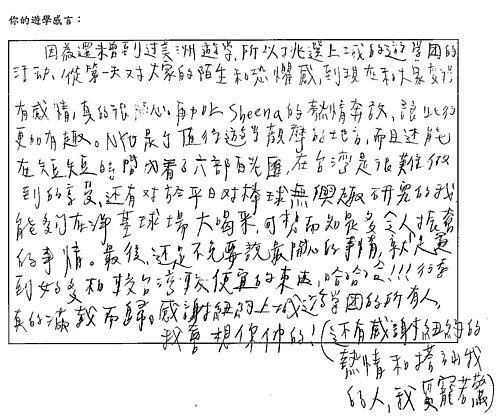 你的遊學感言:
因為還未曾到过美洲遊學,所以挑選上城的遊學团的
活动,從第一天对大家的陌生和恐懼感,到現在和大家变得
有感情,真的很開心,再加上Sheena的熱情奔放,讓此行
更加有趣。NY也是个值得遊學觀摩的地方,而且还能
在短短的時間內看了六部百老匯,在台湾是很難做
到的享受,还有对於平日对棒球無興趣研究的我
能夠在洋基球場大喝采,可想而知是多令人振奮
的事情。最後,还是不免要說最開心的事情,就是買
到好多相較台湾較便宜的東西,哈哈哈!!!行李
真的滿載而歸。感謝紐約上城遊學团的所有人,
我會想你们的!(还有感謝紐約的
熱情和搭訕我
的人,我受寵若驚)